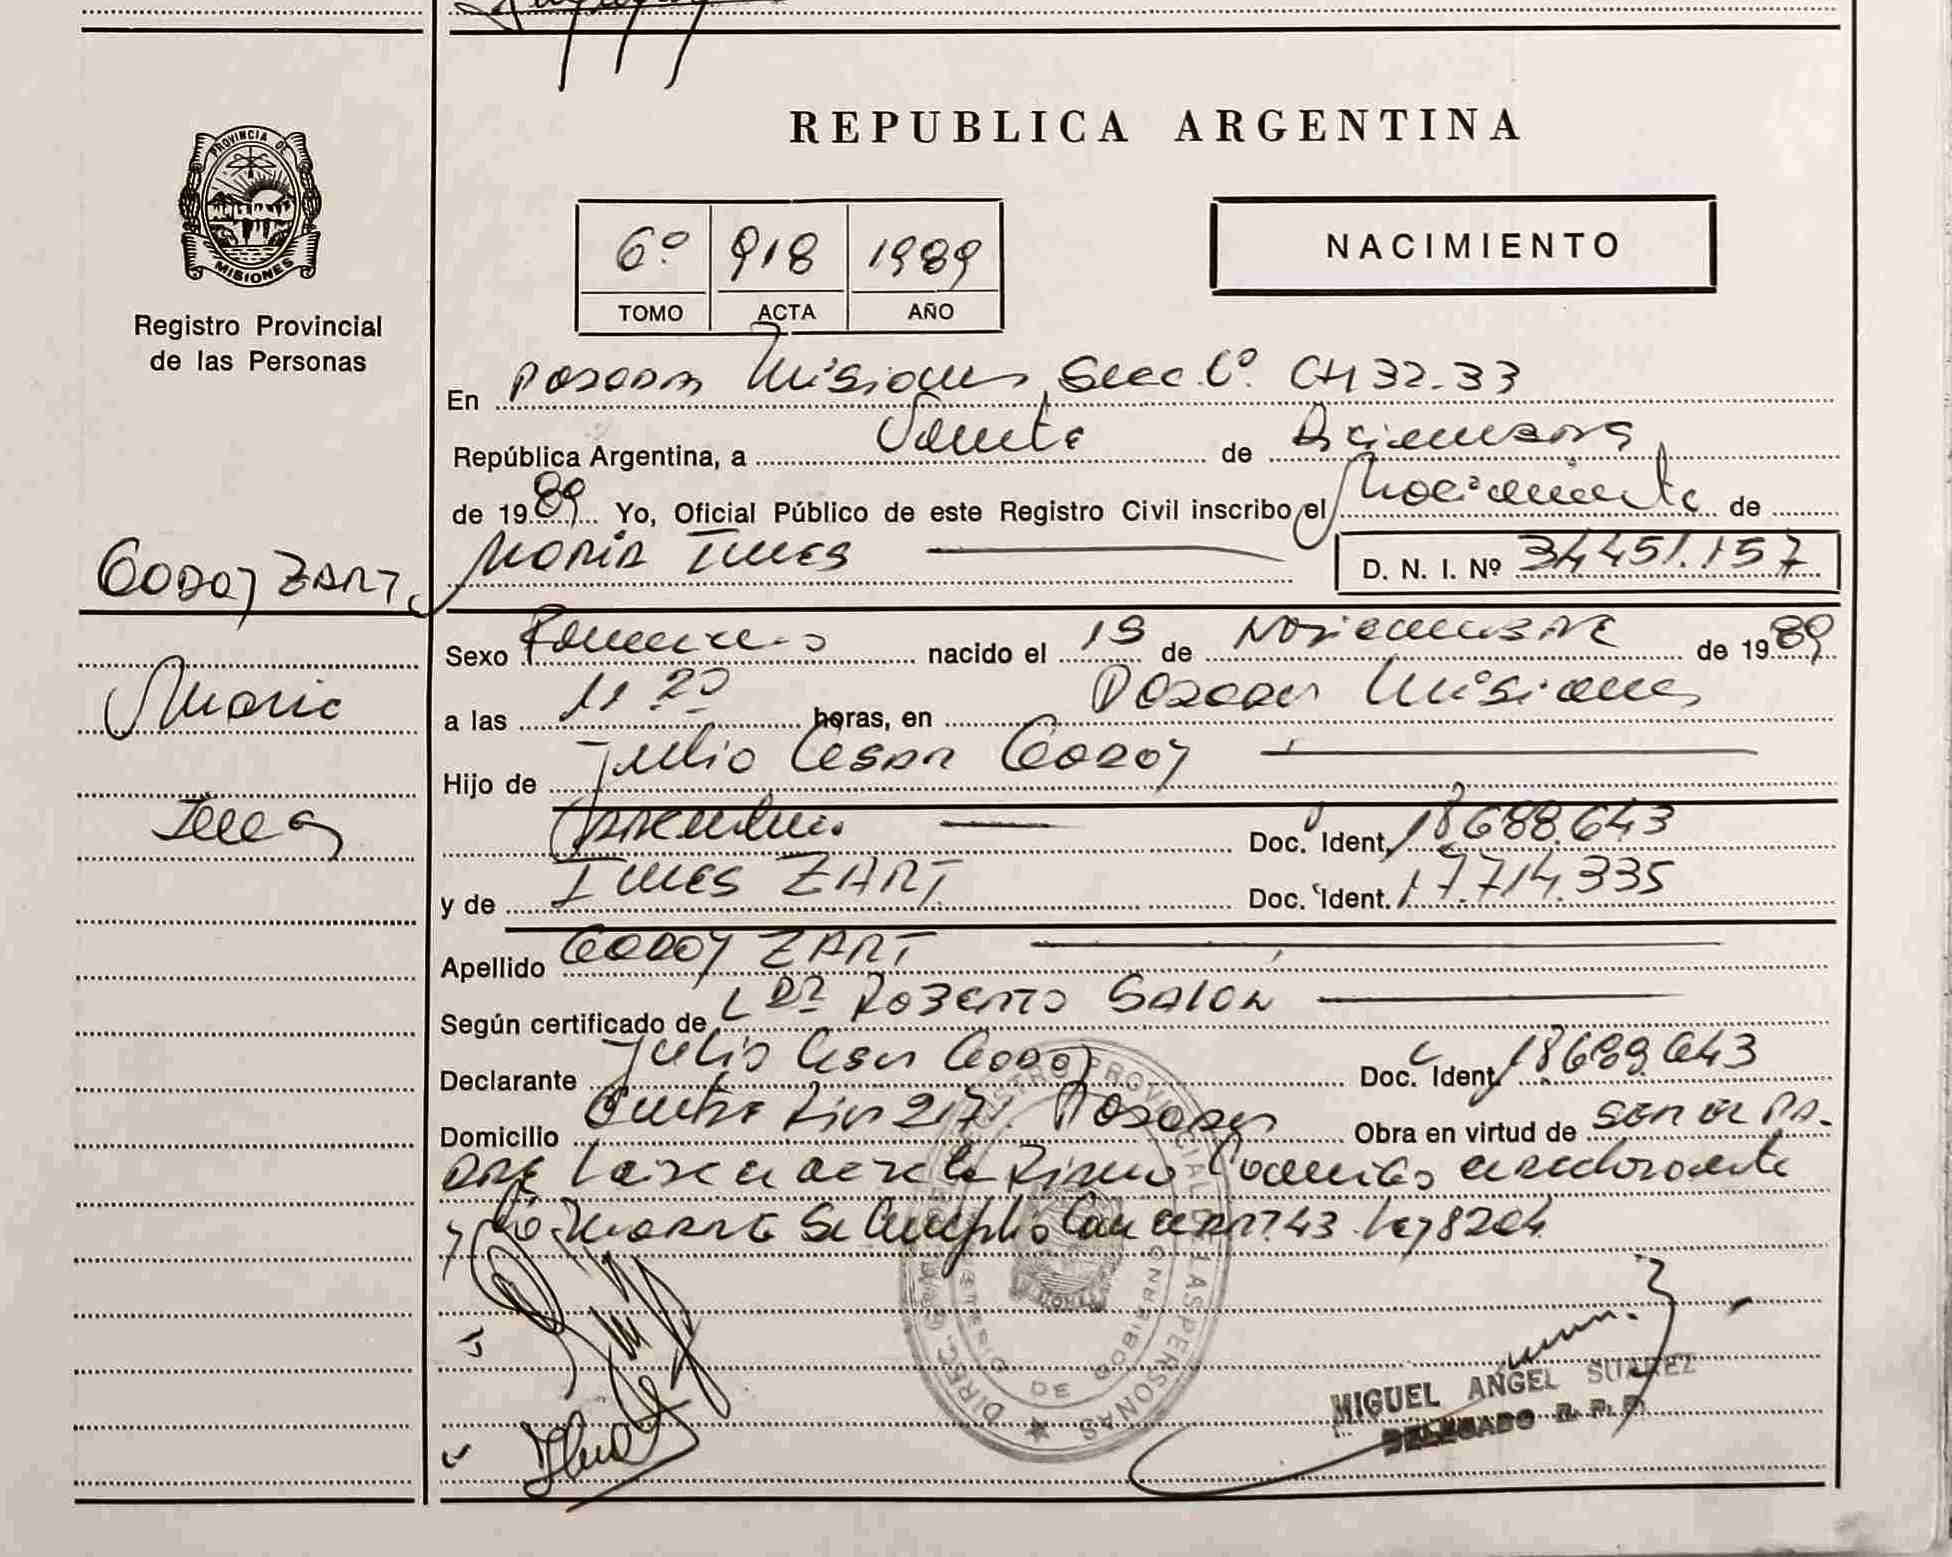 PROVINCIA DE
MISIONES
Registro Provincial
de las Personas
REPUBLICA ARGENTINA
6º 918 1989
TOMO ACTA AÑO
NACIMIENTO
En Posadas Misiones, Secc. 6º. CH 32-33
República Argentina, a Veinte de Diciembre
de 1989 Yo, Oficial Público de este Registro Civil inscribo el Nacimiento de
GODOY ZART, MARIA INES D. N. I. Nº 34451.157
Maria
Ines
Sexo Femenino nacido el 19 de Noviembre de 1989
a las 11 20 horas, en Posadas Misiones
Hijo de Julio Cesar Godoy
Argentino Doc. Ident. 18688.643
y de INES ZART Doc. Ident. 17.714.335
Apellido GODOY ZART
Según certificado de Dr Roberto
Declarante Julio Cesar Godoy Doc. Ident. 18688.643
Domicilio Entre Rios 2171 Posadas Obra en virtud de SER EL PA-
DRE
y la Madre Se Cumplio Con el art. 43 Ley 8204
REGISTRO PROVINCIAL DE LAS PERSONAS
MIGUEL ANGEL SUAREZ
DELEGADO R. P. P.